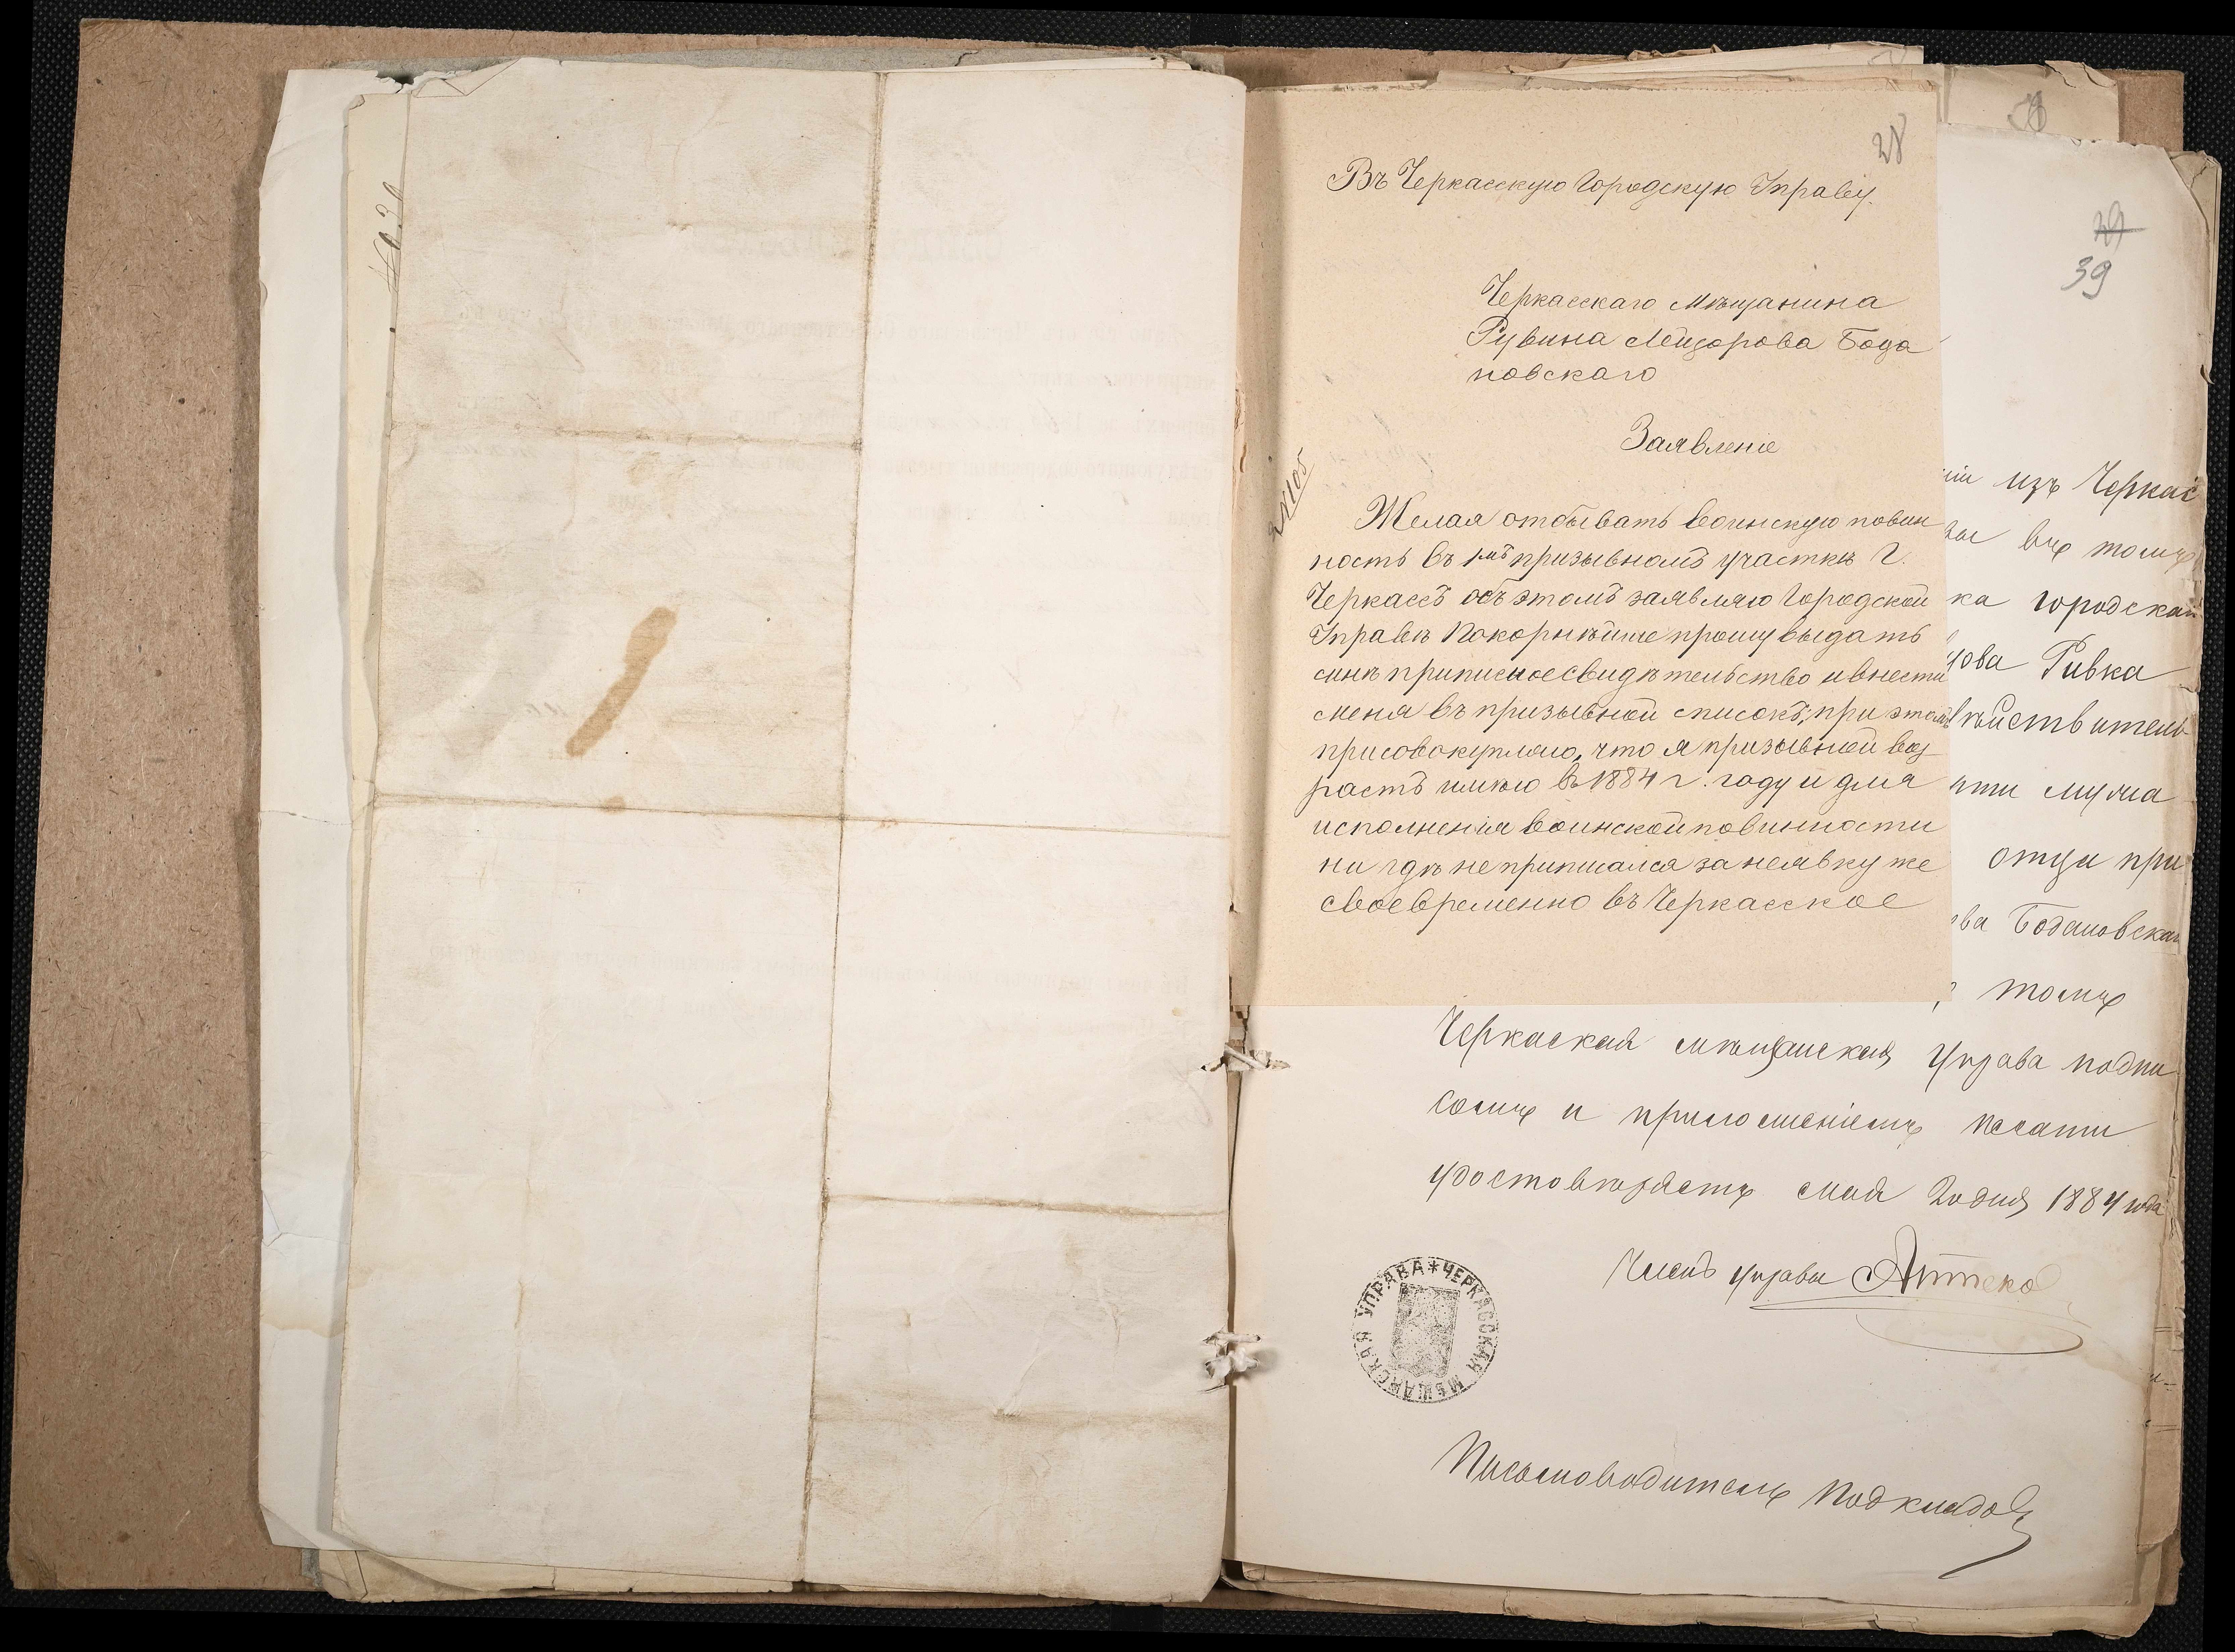 28
Въ Черкасскую Городскую Управу.
Черкасскаго мѣщанина
Рувина Лейзорова Бода
новскаго
Заявленіе
Желая отбывать воинскую повин
ность въ 1мъ призывномъ участкѣ г.
Черкассъ объ этомъ заявляю Городской
Управѣ Покорнѣйше прошу выдать
мнѣ приписное свидѣтельство и внести
меня въ призывной списокъ; при этомъ
присовокупляю, что я призывной воз
растъ имѣю въ 1884 г. году и для
исполненія воинской повинности
ни гдѣ не приписался за неявку же
своевременно въ Черкасское
29
39
изъ Черкас
въ томъ
ка городская
Ривка
йствитель
мужа
отца при
ва Бодановская
томъ
Черкаская мѣщанская Управа подпи
сомъ и приложеніемъ печати
удостовѣряетъ мая 20 дня 1884 года
Членъ управы Аптеко
УПРАВА * ЧЕРКАССКАЯ МѢЩАНСКАЯ
Письмоводитель Подкладов